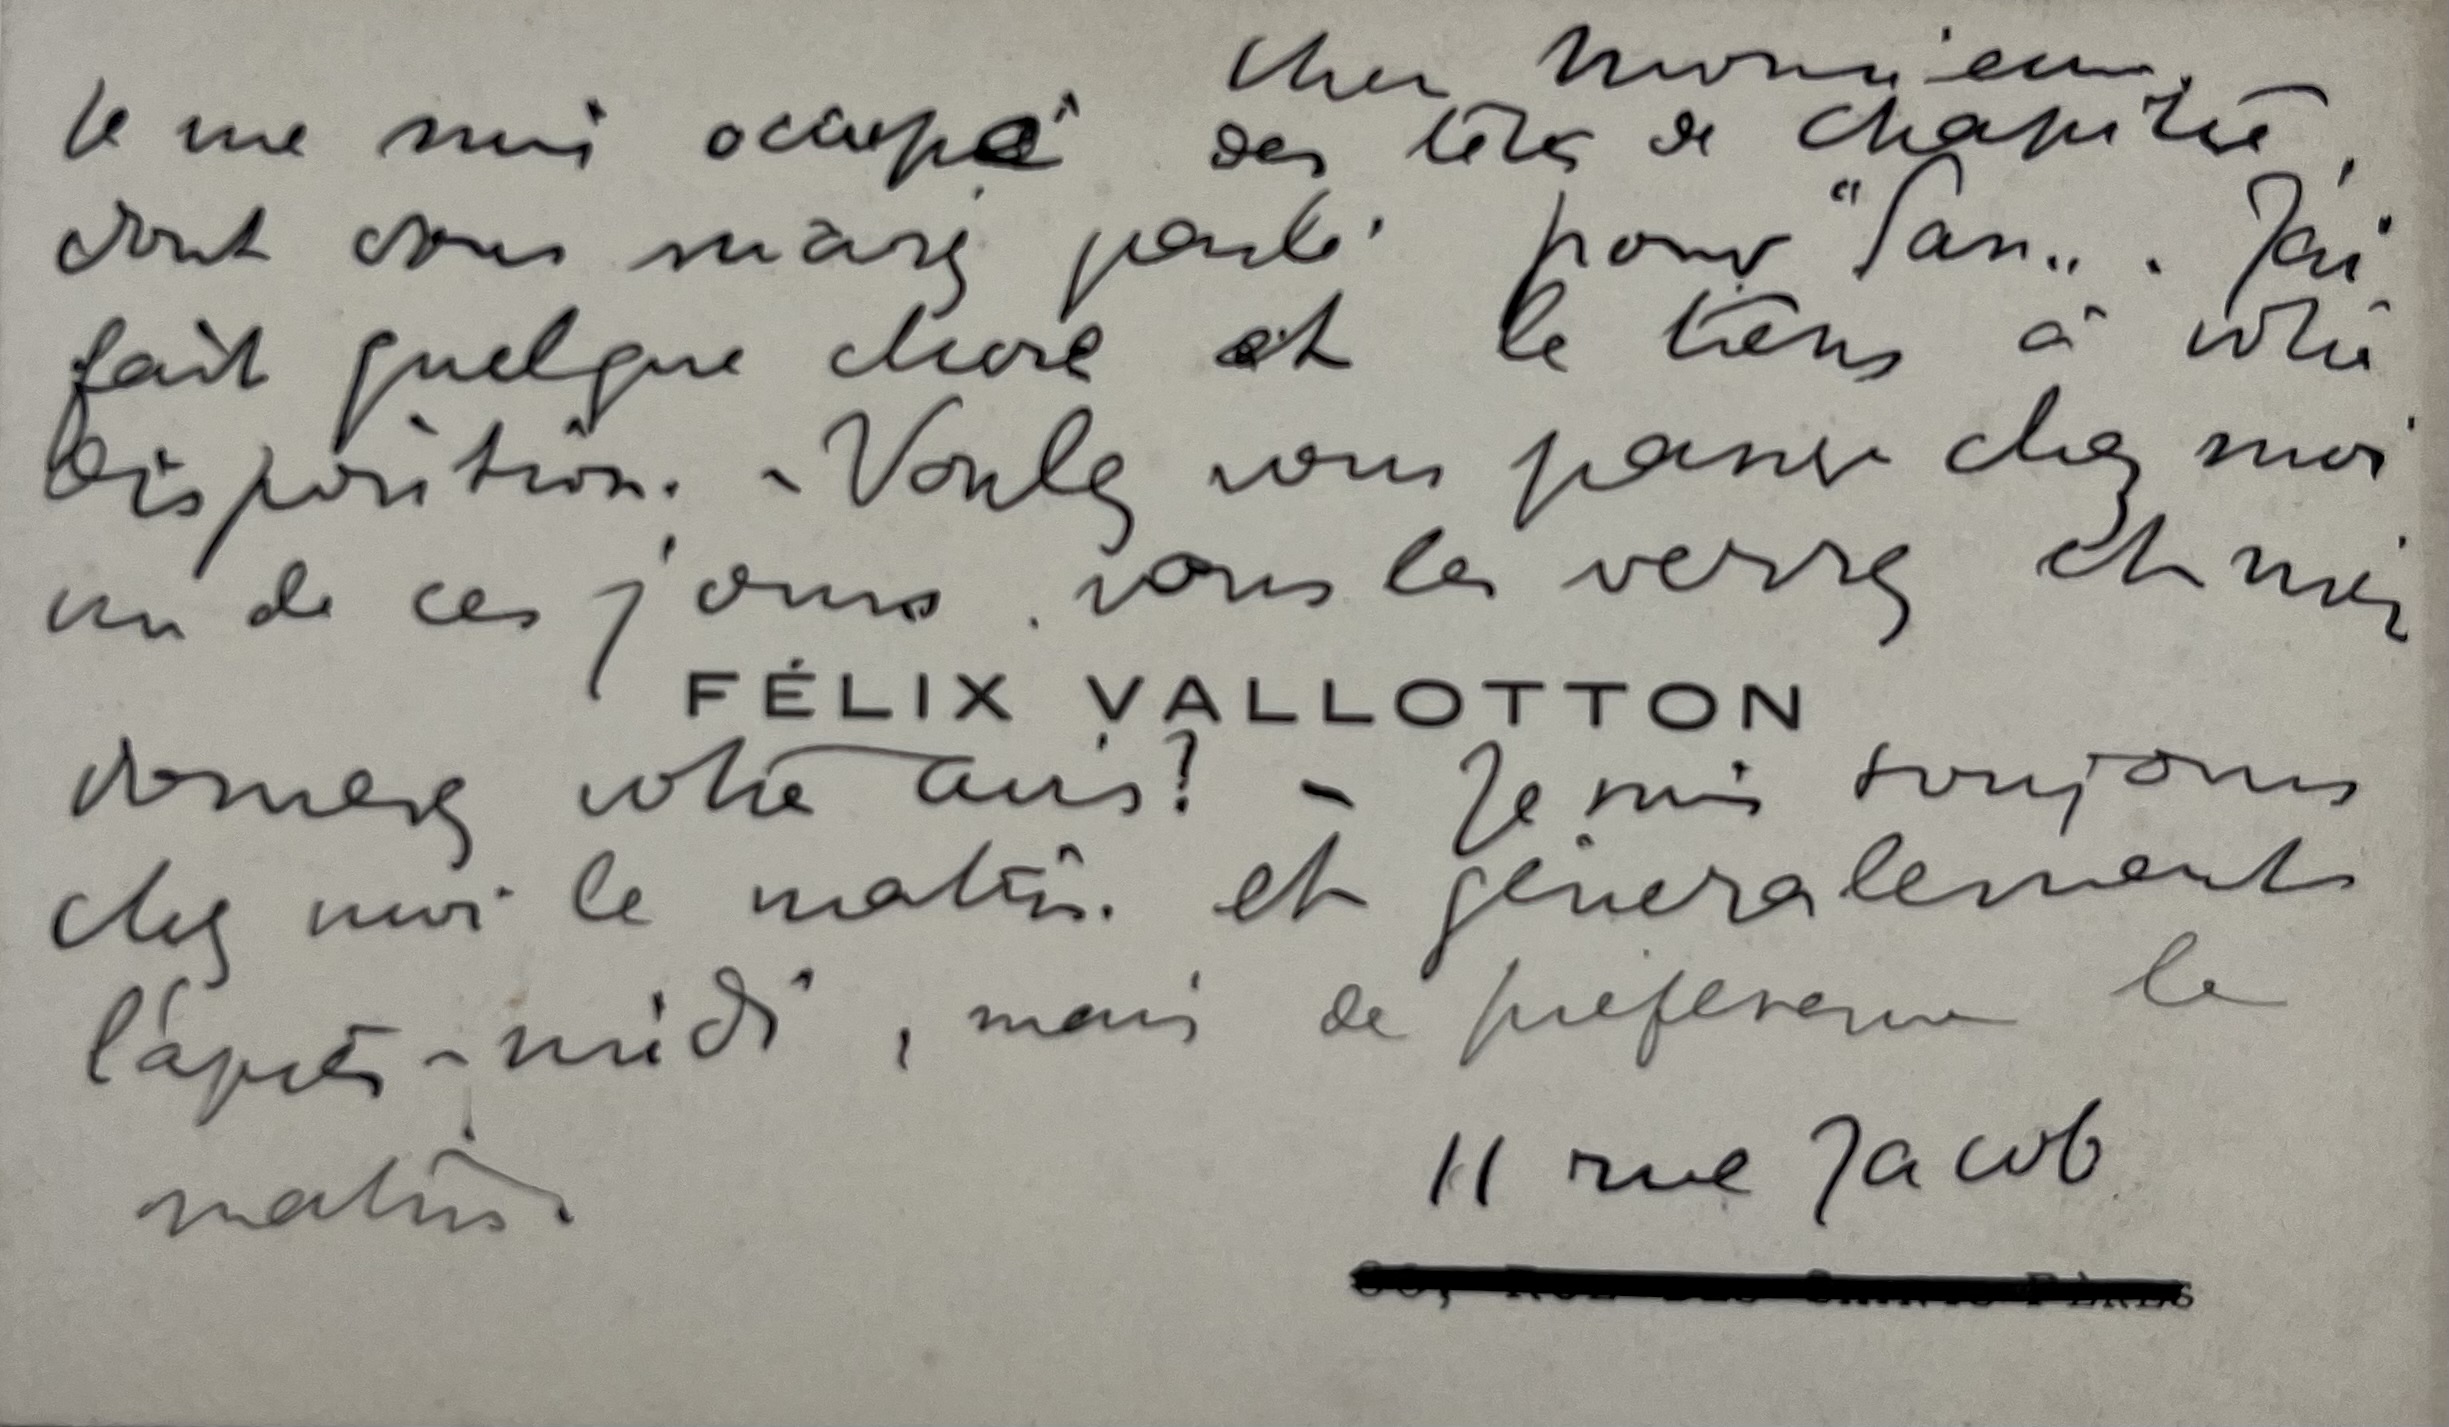 Cher Monsieur,
Je me suis occupé des têtes de chapitre,
dont vous m'avez parlé pour "Pan". J'ai
fait quelque chose et le tiens à votre
disposition. - Voulez vous passer chez moi
un de ces jours. vous les verrez et m'en
FÉLIX VALLOTTON
donnerez votre avis? - Je suis toujours
chez moi le matin. et généralement
l'après-midi, mais de préférence le
matin.
11 rue Jacob
RUE DES SAINTS PÈRES